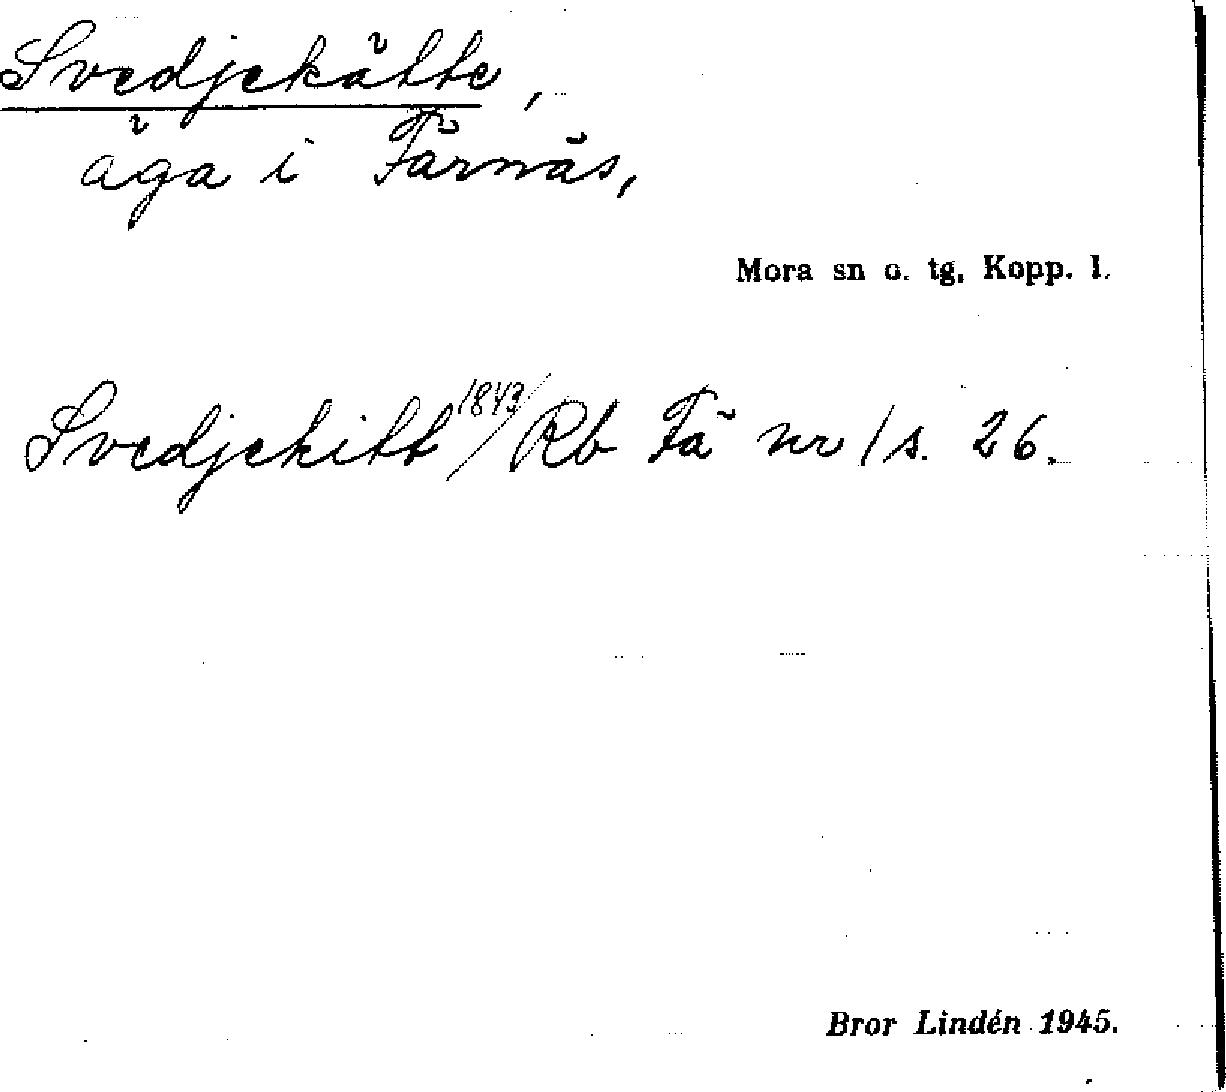 Svedjekätte,
äga i Färnäs,
Mora sn o. tg, Kopp. l.
Svedjekitt 1843/ Rb Fä nr 1 s. 26.
Bror Lindén 1945.